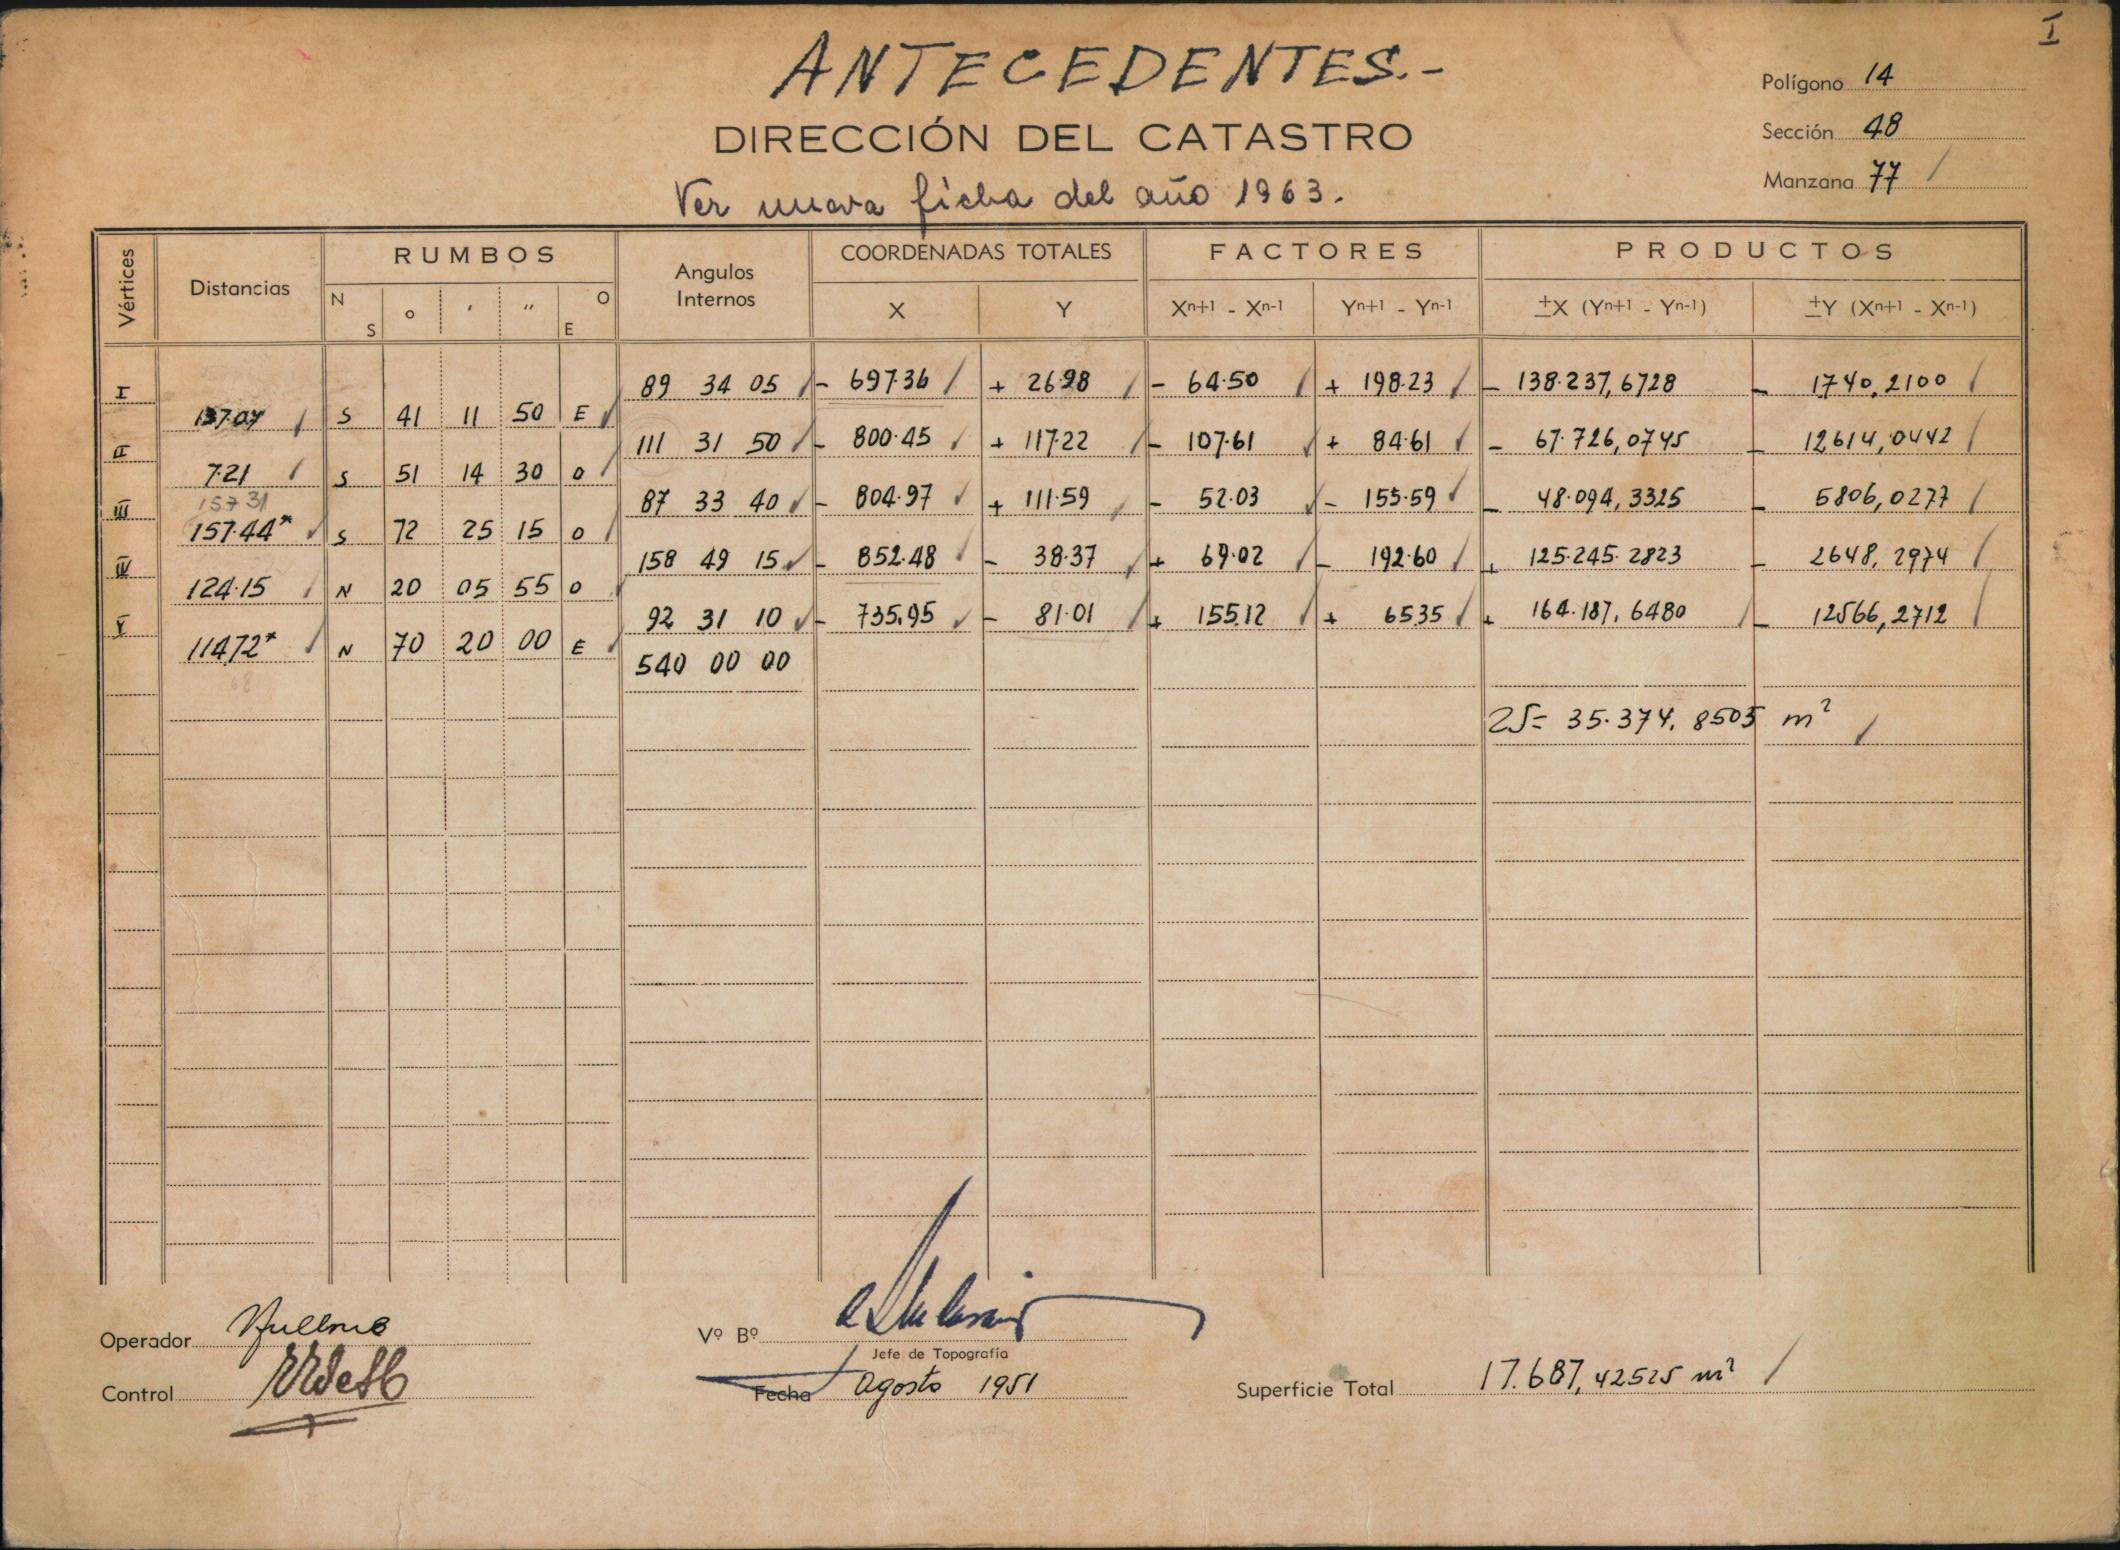 I
ANTECEDENTES.-
DIRECCIÓN DEL CATASTRO
Ver nueva ficha del año 1963.
Polígono 14
Sección 48
Manzana 77
Vértices Distancias RUMBOS Angulos Internos COORDENADAS TOTALES FACTORES PRODUCTOS
N S ° ' " O E X Y Xn+1 - Xn-1 Yn+1 - Yn-1 ±X (Yn+1 - Yn-1) ±Y (Xn+1 - Xn-1)
I 89 34 05 - 697.36 + 26.98 - 64.50 + 198.23 - 138.237,6728 - 1740,2100
137.07 S 41 11 50 E
II 111 31 50 - 800.45 + 117.22 - 107.61 + 84.61 - 67.726,0745 - 12614,0442
7.21 S 51 14 30 O
III 87 33 40 - 804.97 + 111.59 - 52.03 - 155.59 - 48.094,3325 - 5806,0277
157 31
157.44* S 72 25 15 O
IV 158 49 15 - 852.48 - 38.37 + 69.02 - 192.60 + 125.245.2823 - 2648,2974
124.15 N 20 05 55 O
V 92 31 10 - 735.95 - 81.01 + 155.12 + 65.35 + 164.187,6480 - 12566,2712
114.72* N 70 20 00 E
68
540 00 00
2S= 35.374,8505 m²
Operador
Control
Vº Bº
Jefe de Topografía
Fecha Agosto 1951
Superficie Total 17.687,42525 m²